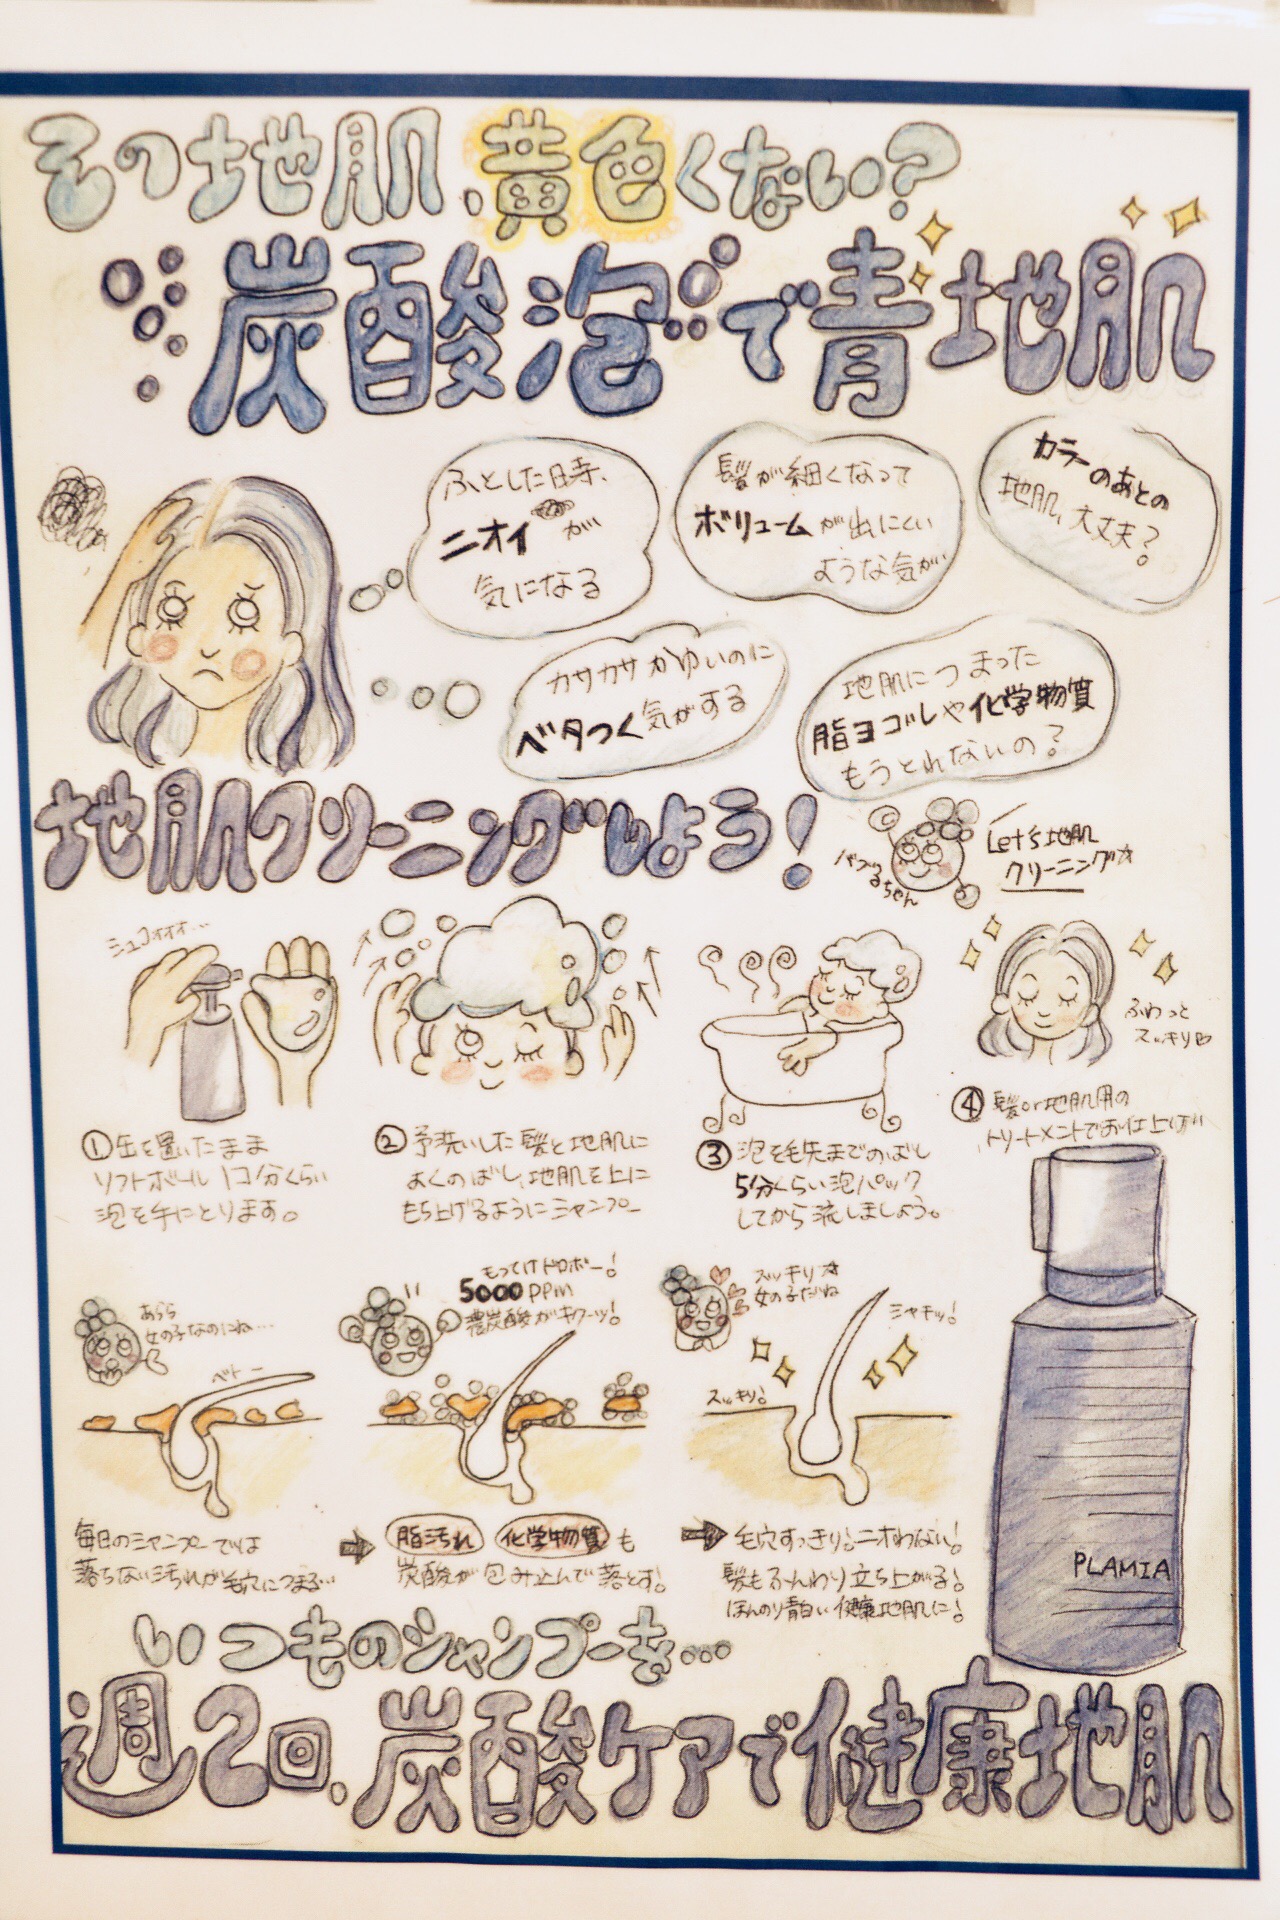 その地肌、黄色くない?
炭酸泡で青地肌
ふとした時、
ニオイが
気になる
髪が細くなって
ボリュームが出にくい
ような気が
カラーのあとの
地肌、大丈夫?
カサカサかゆいのに
ベタつく気がする
地肌につまった
脂ヨゴレや化学物質
もうとれないの?
地肌クリーニングしよう!
バブるちゃん
Let's地肌
クリーニング☆
シュコォォォ…
ふわっと
スッキリ♡
①缶を置いたまま
ソフトボール1コ分くらい
泡を手にとります。
②予洗いした髪と地肌に
よくのばし、地肌を上に
もち上げるようにシャンプー
③泡を毛先までのばし
5分くらい泡パック
してから流しましょう。
④髪or地肌用の
トリートメントでお仕上げ
あらら
女の子なのにね…
ベトー
もってけドロボー!
5000ppm
濃炭酸がキクーッ!
スッキリ☆
女の子だね
シャキッ!
スッキリ!
毎日のシャンプーでは
落ちない汚れが毛穴につまる…
➡ 脂汚れ 化学物質も
炭酸が包み込んで落とす!
➡ 毛穴すっきり!ニオわない!
髪もふんわり立ち上がる!
ほんのり青白い健康地肌に!
PLAMIA
いつものシャンプーを…
週2回、炭酸ケアで健康地肌